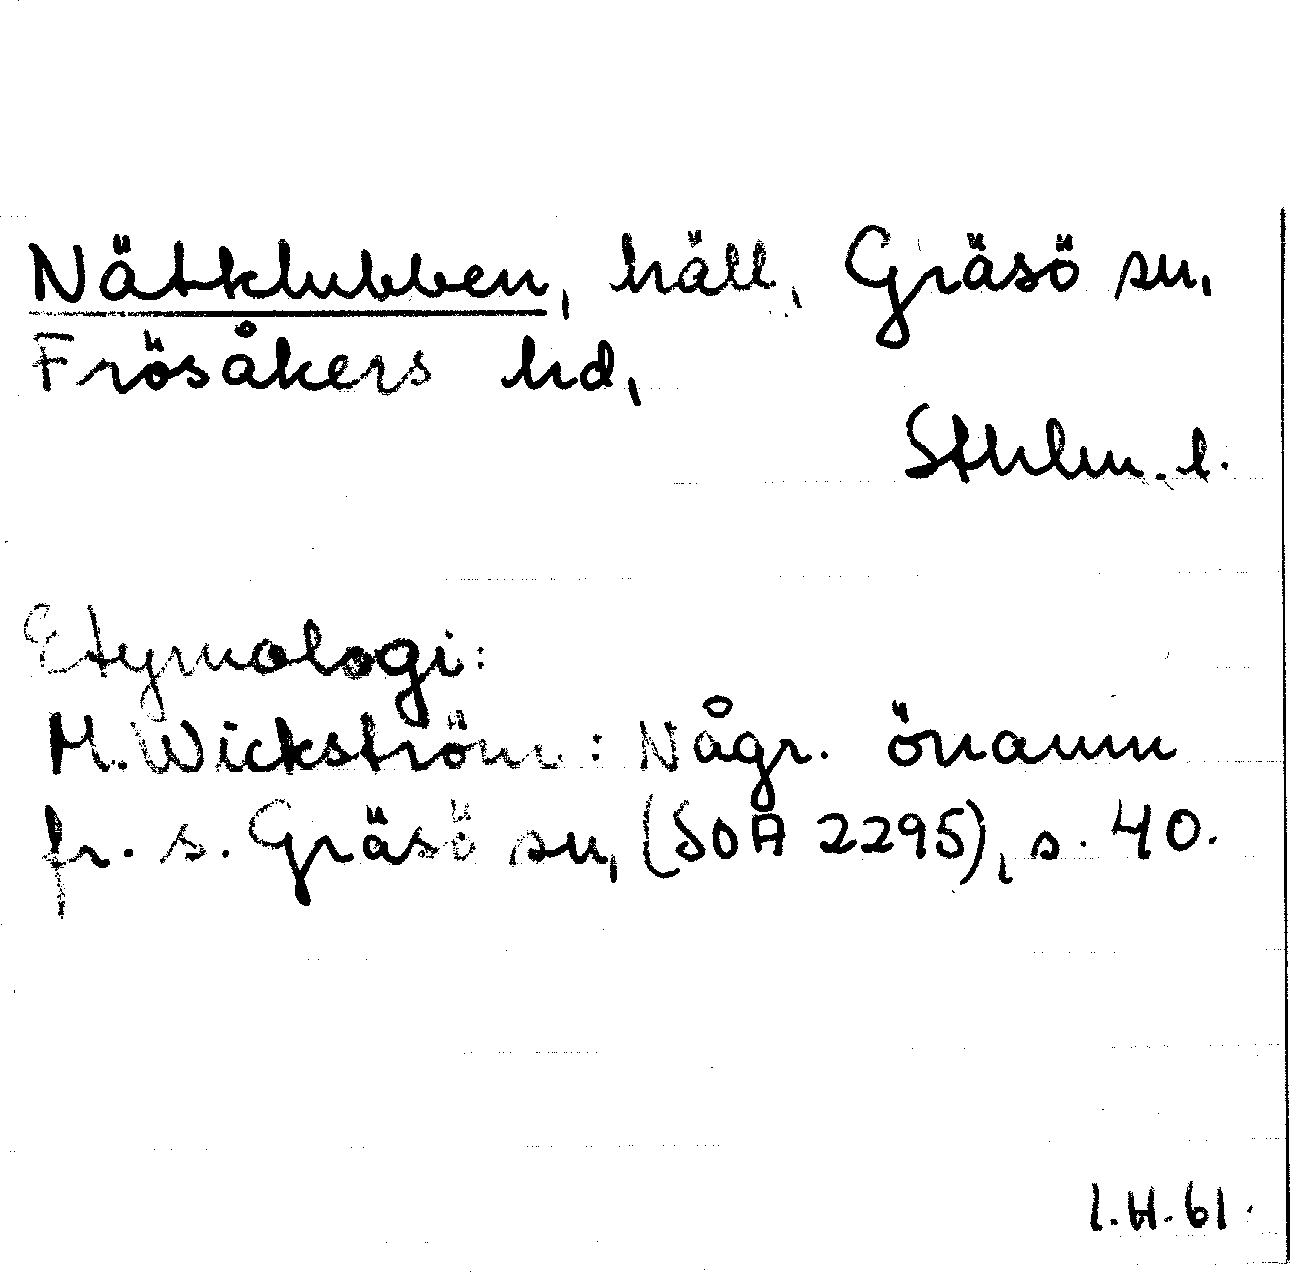 Nätklubben, häll, Gräsö sn,
Frösåkers hd,
Sthlm. l.
Etymologi:
M. Wickström: Någr. önamn
fr. s. Gräsö sn, (SOA 2295), s. 40.
I.H. 61.